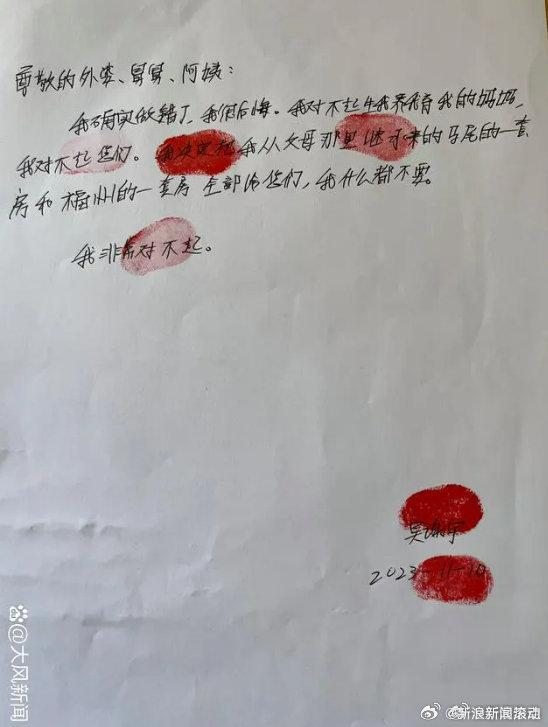 尊敬的外婆、舅舅、阿姨：
我确实做错了，我很后悔。我对不起生我养育我的妈妈，
我对不起您们。我决定把我从父母那里继承来的马尾的一套
房和福州的一套房全部给您们，我什么都不要。
我非常对不起。
吴谢宇
2023-11-10
@大风新闻
@新浪新闻滚动